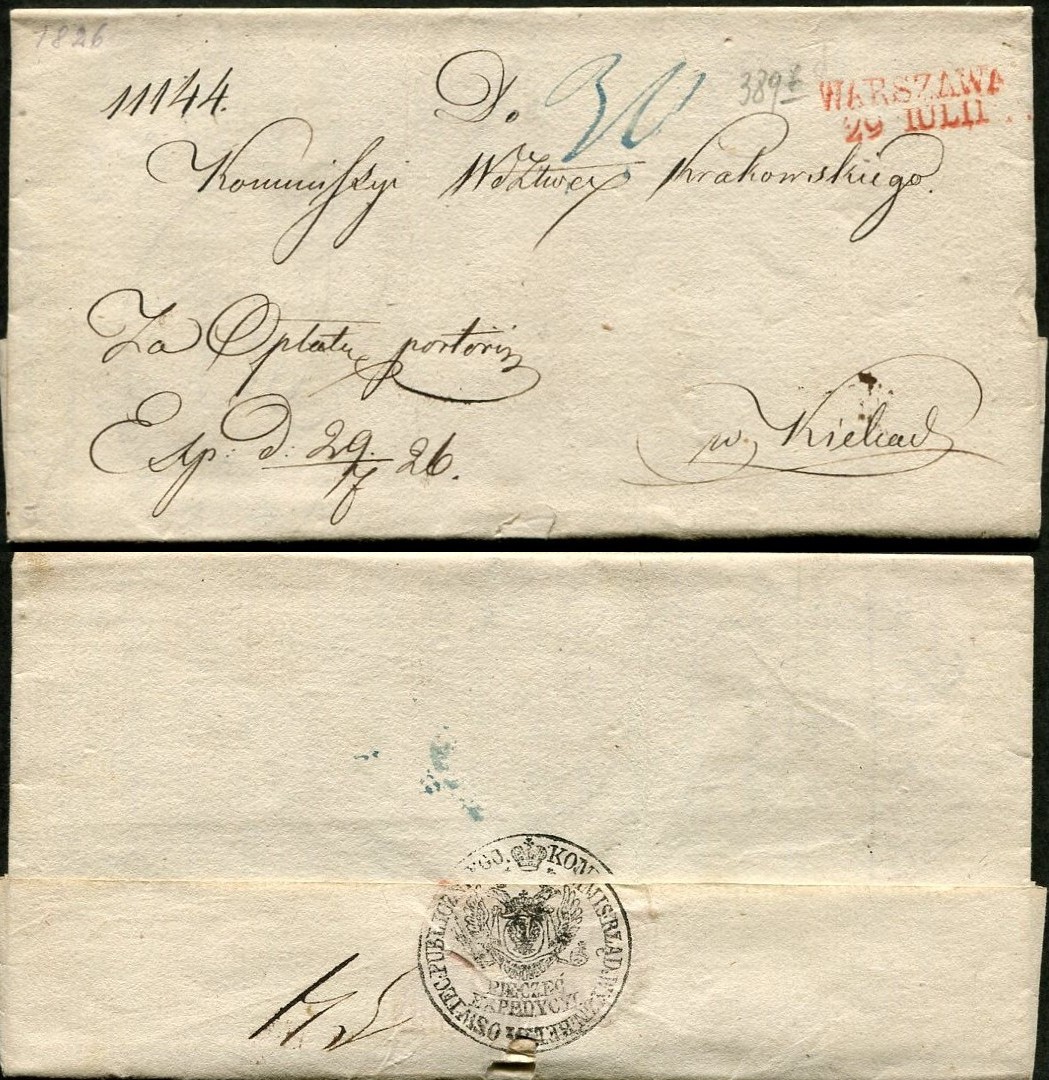 1826
11144.
D. 30 389
WARSZAWA
29 IULII
Kommissyi Wdztwa Krakowskiego.
Za Opłatą portoria
Exp: D. 29/7 26.
w Kielcach
KOMMIS: RZĄD: WYZN: REL: I OŚWIEC: PUBLICZNEGO.
PIECZĘĆ
EXPEDYCYI